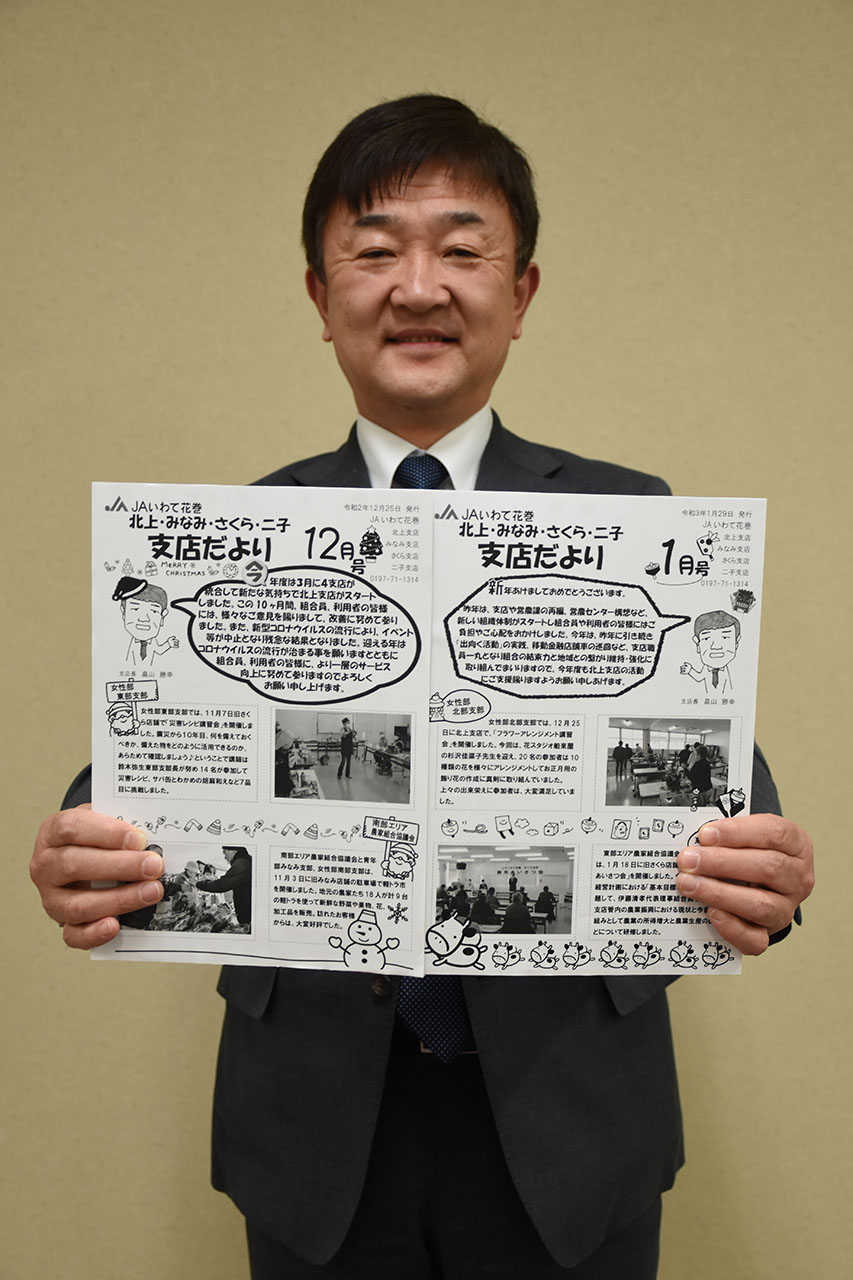 JAいわて花巻
北上・みなみ・さくら・二子
支店だより 12月号
令和2年12月25日 発行
JAいわて花巻
北上支店
みなみ支店
さくら支店
二子支店
0197-71-1314
MERRY
CHRISTMAS
今年度は3月に4支店が
統合して新たな気持ちで北上支店がスタート
しました。この10ヶ月間、組合員、利用者の皆様
には、様々なご意見を賜りまして、改善に努めて参り
ました。また、新型コロナウイルスの流行により、イベント
等が中止となり残念な結果となりました。迎える年は
コロナウイルスの流行が治まる事を願いますとともに
組合員、利用者の皆様に、より一層のサービス
向上に努めて参りますのでよろしく
お願い申し上げます。
支店長 畠山 勝幸
女性部
東部支部
女性部東部支部では、11月7日旧さく
ら店舗で「災害レシピ講習会」を開催しま
した。震災から10年目、何を備えておく
べきか、備えた物をどのように活用できるのか、
あらためて確認しましょう♪ということで講師は
鈴木弥生東部支部長が努め14名が参加して
災害レシピ、サバ缶とわかめの胡麻和えなど7品
目に挑戦しました。
南部エリア
農家組合協議会
南部エリア農家組合協議会と青年
部みなみ支部、女性部南部支部は、
11月3日に旧みなみ店舗の駐車場で軽トラ市
を開催しました。地元の農家たち18人が計9台
の軽トラを使って新鮮な野菜や果物、花、
加工品を販売。訪れたお客様
からは、大変好評でした。
JAいわて花巻
北上・みなみ・さくら・二子
支店だより 1月号
令和3年1月29日 発行
JAいわて花巻
北上支店
みなみ支店
さくら支店
二子支店
0197-71-1314
新年あけましておめでとうございます。
昨年は、支店や営農課の再編、営農センター構想など、
新しい組織体制がスタートし組合員や利用者の皆様にはご
負担やご心配をおかけしました。今年は、昨年に引き続き
「出向く活動」の実践、移動金融店舗車の巡回など、支店職
員一丸となり組合の結束力と地域との繋がり維持・強化に
取り組んでまいりますので、今年度も北上支店の活動
にご支援賜りますようお願い申しあげます。
支店長 畠山 勝幸
女性部
北部支部
女性部北部支部では、12月25
日に北上支店で、「フラワーアレンジメント講習
会」を開催しました。今回は、花スタジオ舶来屋
の杉沢佳菜子先生を迎え、20名の参加者は10
種類の花を様々にアレンジメントしてお正月用の
飾り花の作成に真剣に取り組んでいました。
上々の出来栄えに参加者は、大変満足していま
した。
東部エリア農家組合協議会
は、1月18日に旧さくら店舗
あいさつ会」を開催しました。
経営計画における「基本目標
題して、伊藤清孝代表理事組合長
支店管内の農業振興における現状と今後
組みとして農業の所得増大と農業生産の
とについて研修しました。